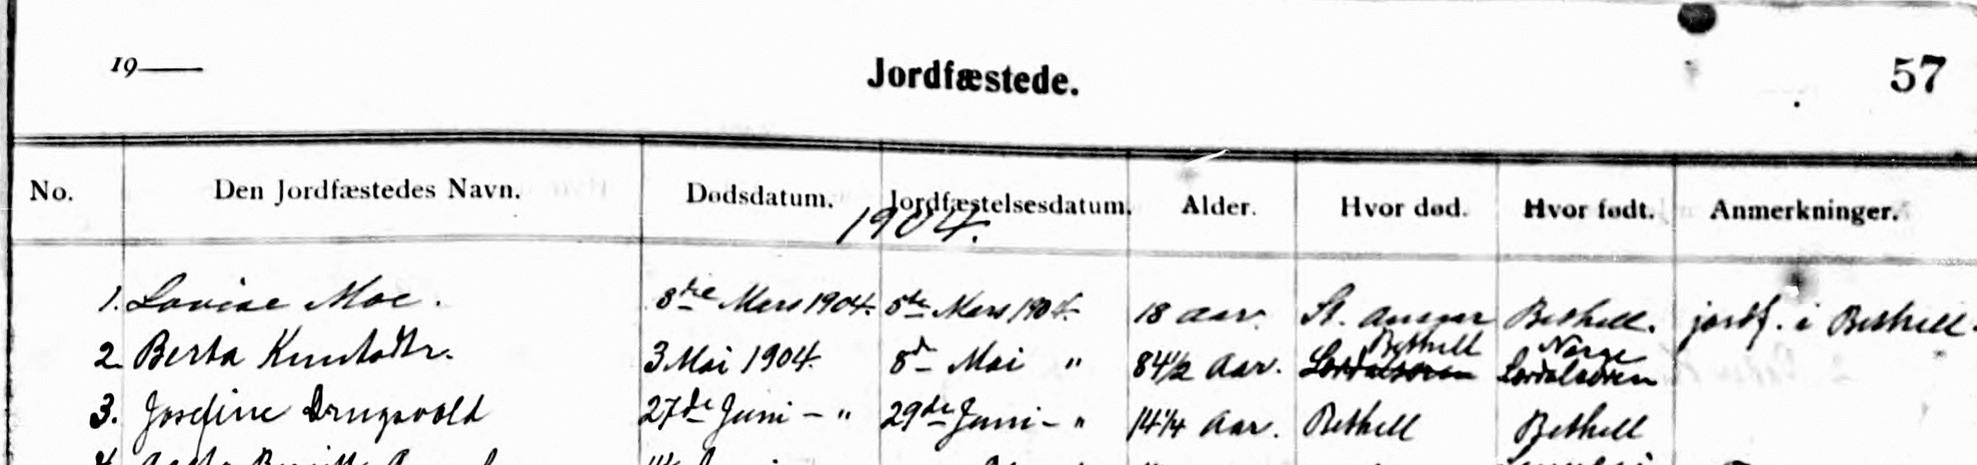 19—
Jordfæstede.
57
No. Den Jordfæstedes Navn. Dødsdatum. Jordfæstelsesdatum. Alder. Hvor død. Hvor født. Anmerkninger.
1904.
1. Lovise Moe. 3die Mars 1904. 5te Mars 1904. 18 aar. St. Ansgar Bethell. jordf. i Bethell.
Bethell Norge
2. Berta Knutsdtr. 3 Mai 1904. 8de Mai " 84 1/2 Aar.
3. Josefine Drugsvold 27de Juni — " 29de Juni — " 14 1/4 Aar. Bethell Bethell